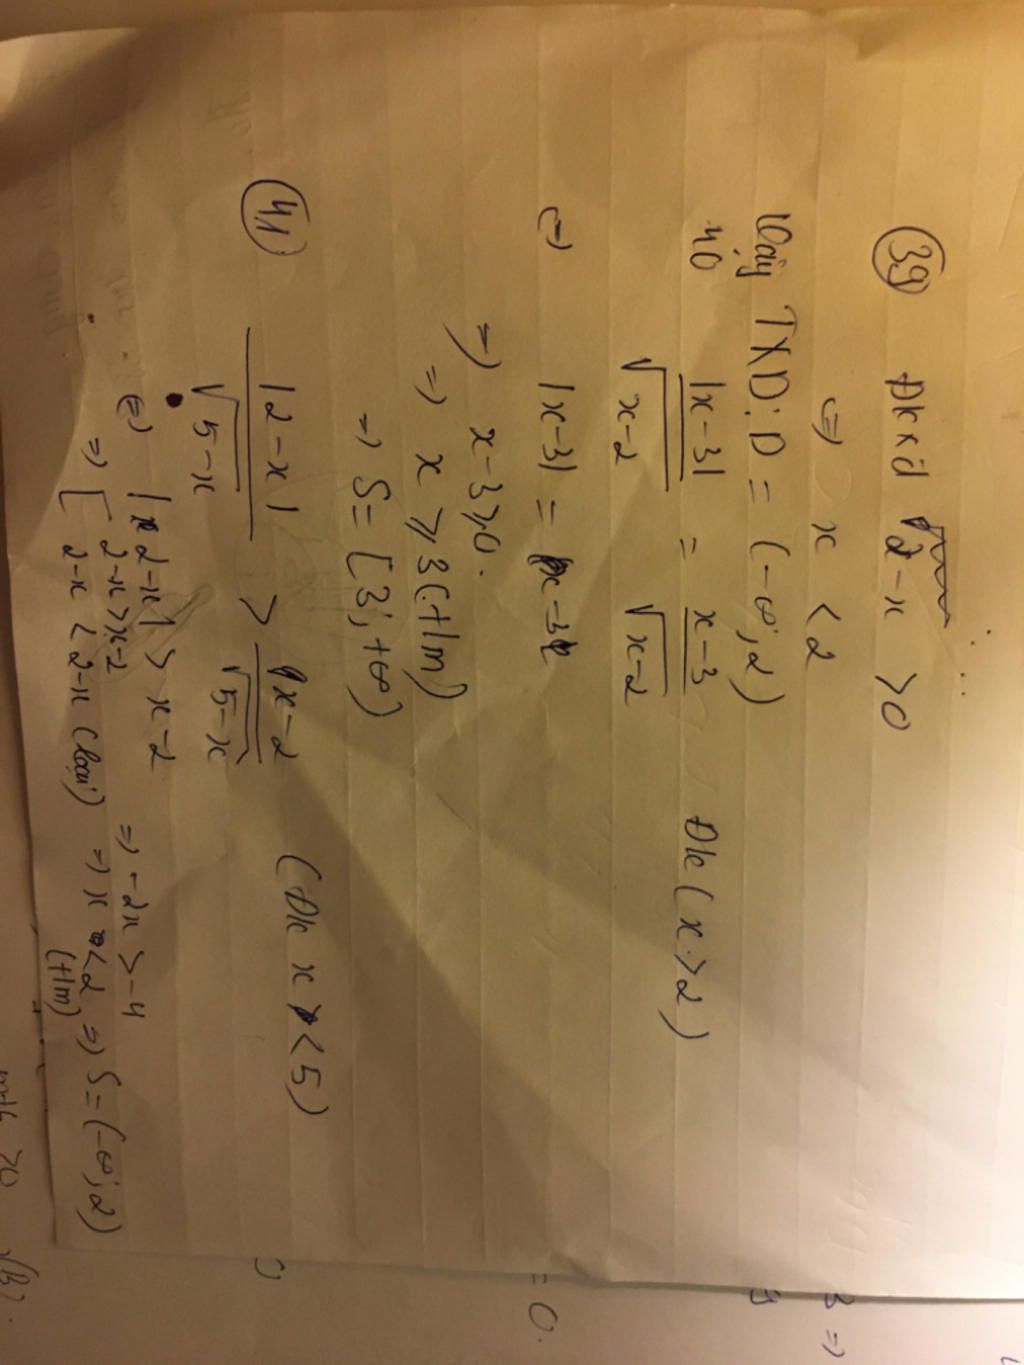 39 Đkxđ 2-x >0
<=> x < 2
Vậy TXD: D = (-∞; 2)
40 |x-3| / √x-2 = x-3 / √x-2 Đk (x > 2)
<=> |x-3| = x-3
=> x-3 ≥ 0.
=> x ≥ 3 (t/m)
=> S = [3; +∞)
41 |2-x| / √5-x > x-2 / √5-x (Đk x < 5)
<=> |2-x| > x-2
=> [ 2-x > x-2 => -2x > -4
2-x < 2-x (loại) => x < 2 (t/m) => S = (-∞; 2)
= 0.
3 =>